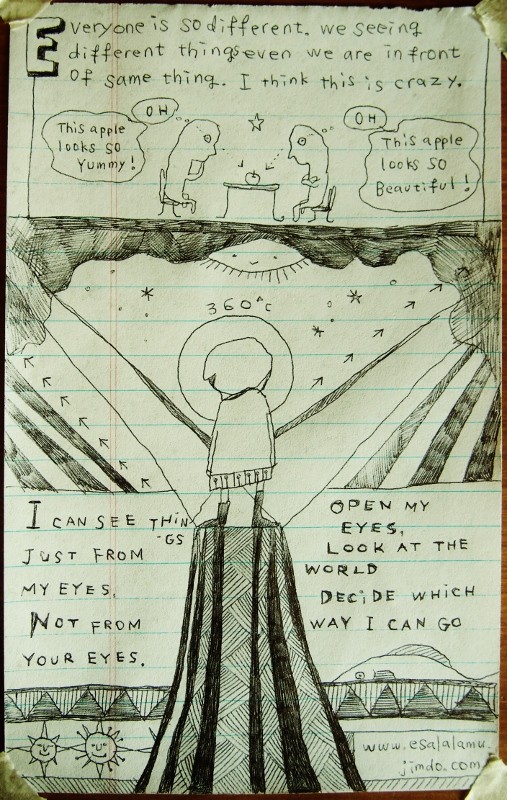 Everyone is so different. we seeing
different things even we are in front
of same thing. I think this is crazy.
OH
This apple
looks so
Yummy!
OH
This apple
looks so
Beautiful!
360°c
I CAN SEE THIN
-GS
JUST FROM
MY EYES.
NOT FROM
YOUR EYES.
OPEN MY
EYES,
LOOK AT THE
WORLD
DECIDE WHICH
WAY I CAN GO
www.esalalamu.
jimdo.com